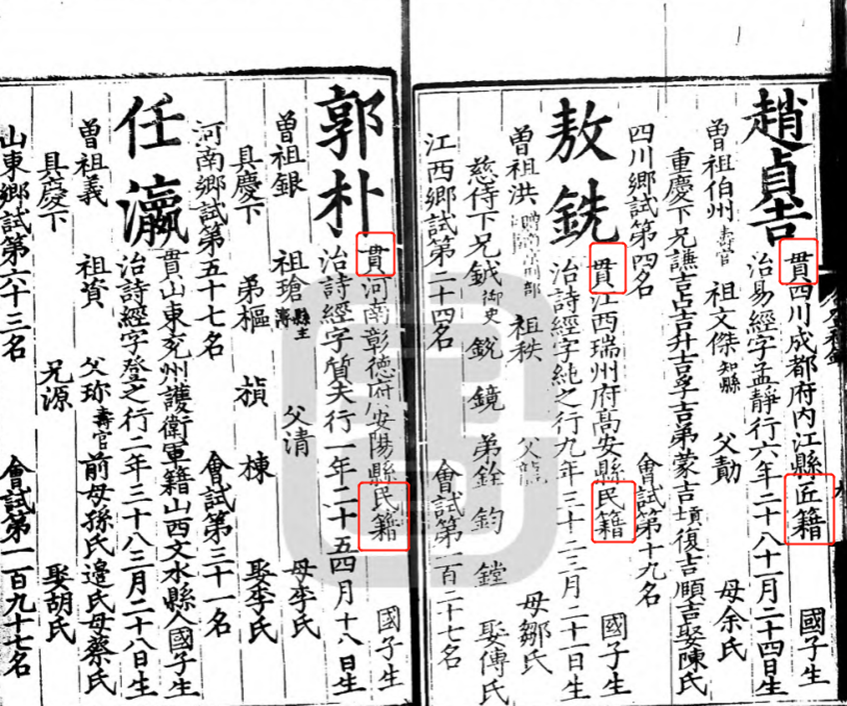 趙貞吉
貫四川成都府內江縣匠籍 國子生
治易經字孟靜行六年二十八十一月二十四日生
曾祖伯州 壽官 祖文傑 知縣 父勣 母余氏
重慶下兄譙吉占吉升吉孚吉弟蒙吉 復吉頤吉娶陳氏
四川鄉試第四名 會試第十九名
敖銑
貫江西瑞州府高安縣民籍 國子生
治詩經字純之行九年三十二三月二十一日生
曾祖洪 祖秩 父 母鄒氏
慈侍下兄鉞 御史 銳 鏡 弟銓 鈞 鏜 娶傅氏
江西鄉試第二十四名 會試第一百二十七名
郭朴
貫河南彰德府安陽縣民籍 國子生
治詩經字質夫行一年二十五四月十八日生
曾祖銀 祖瑲 縣主簿 父清 母李氏
具慶下 弟樞 楨 棟 娶李氏
河南鄉試第五十七名 會試第三十一名
任瀛
貫山東兗州護衛軍籍山西文水縣人國子生
治詩經字登之行二年三十八三月二十八日生
曾祖義 祖貲 父珎 壽官 前母孫氏邉氏母蔡氏
具慶下 兄源 娶胡氏
山東鄉試第六十三名 會試第一百九十七名